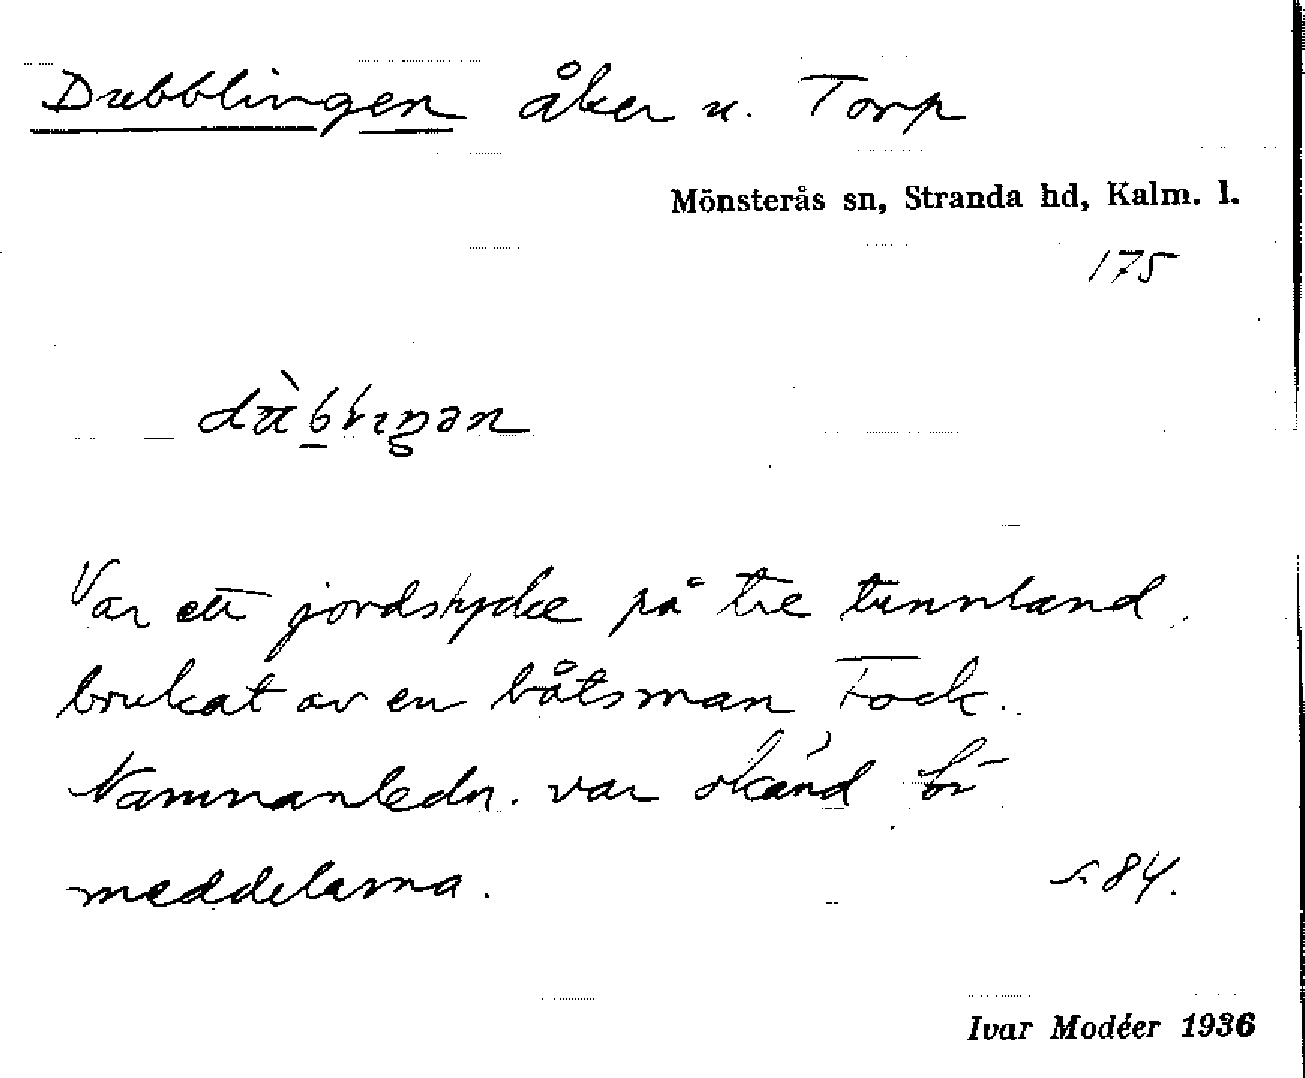 Dubblingen åker u. Torp
Mönsterås sn, Stranda hd, Kalm. l.
175
Var ett jordstycke på tre tunnland
brukat av en båtsman Fock.
Namnanledn. var okänd för
meddelarna.
s. 84.
Ivar Modéer 1936